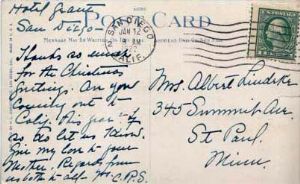 Hotel Grant
San Diego -
POST CARD
SAN DIEGO
JAN 12
CALIF.
Thanks so much
for the Christmas
Greetings. Are you
Coming out to
Calif. this year
as let us know.
Give my love to your
Mother. Regards from
us both to all - C.P.S.
Mrs. Albert Lindeke
345 Summit Ave
St Paul
Minn.